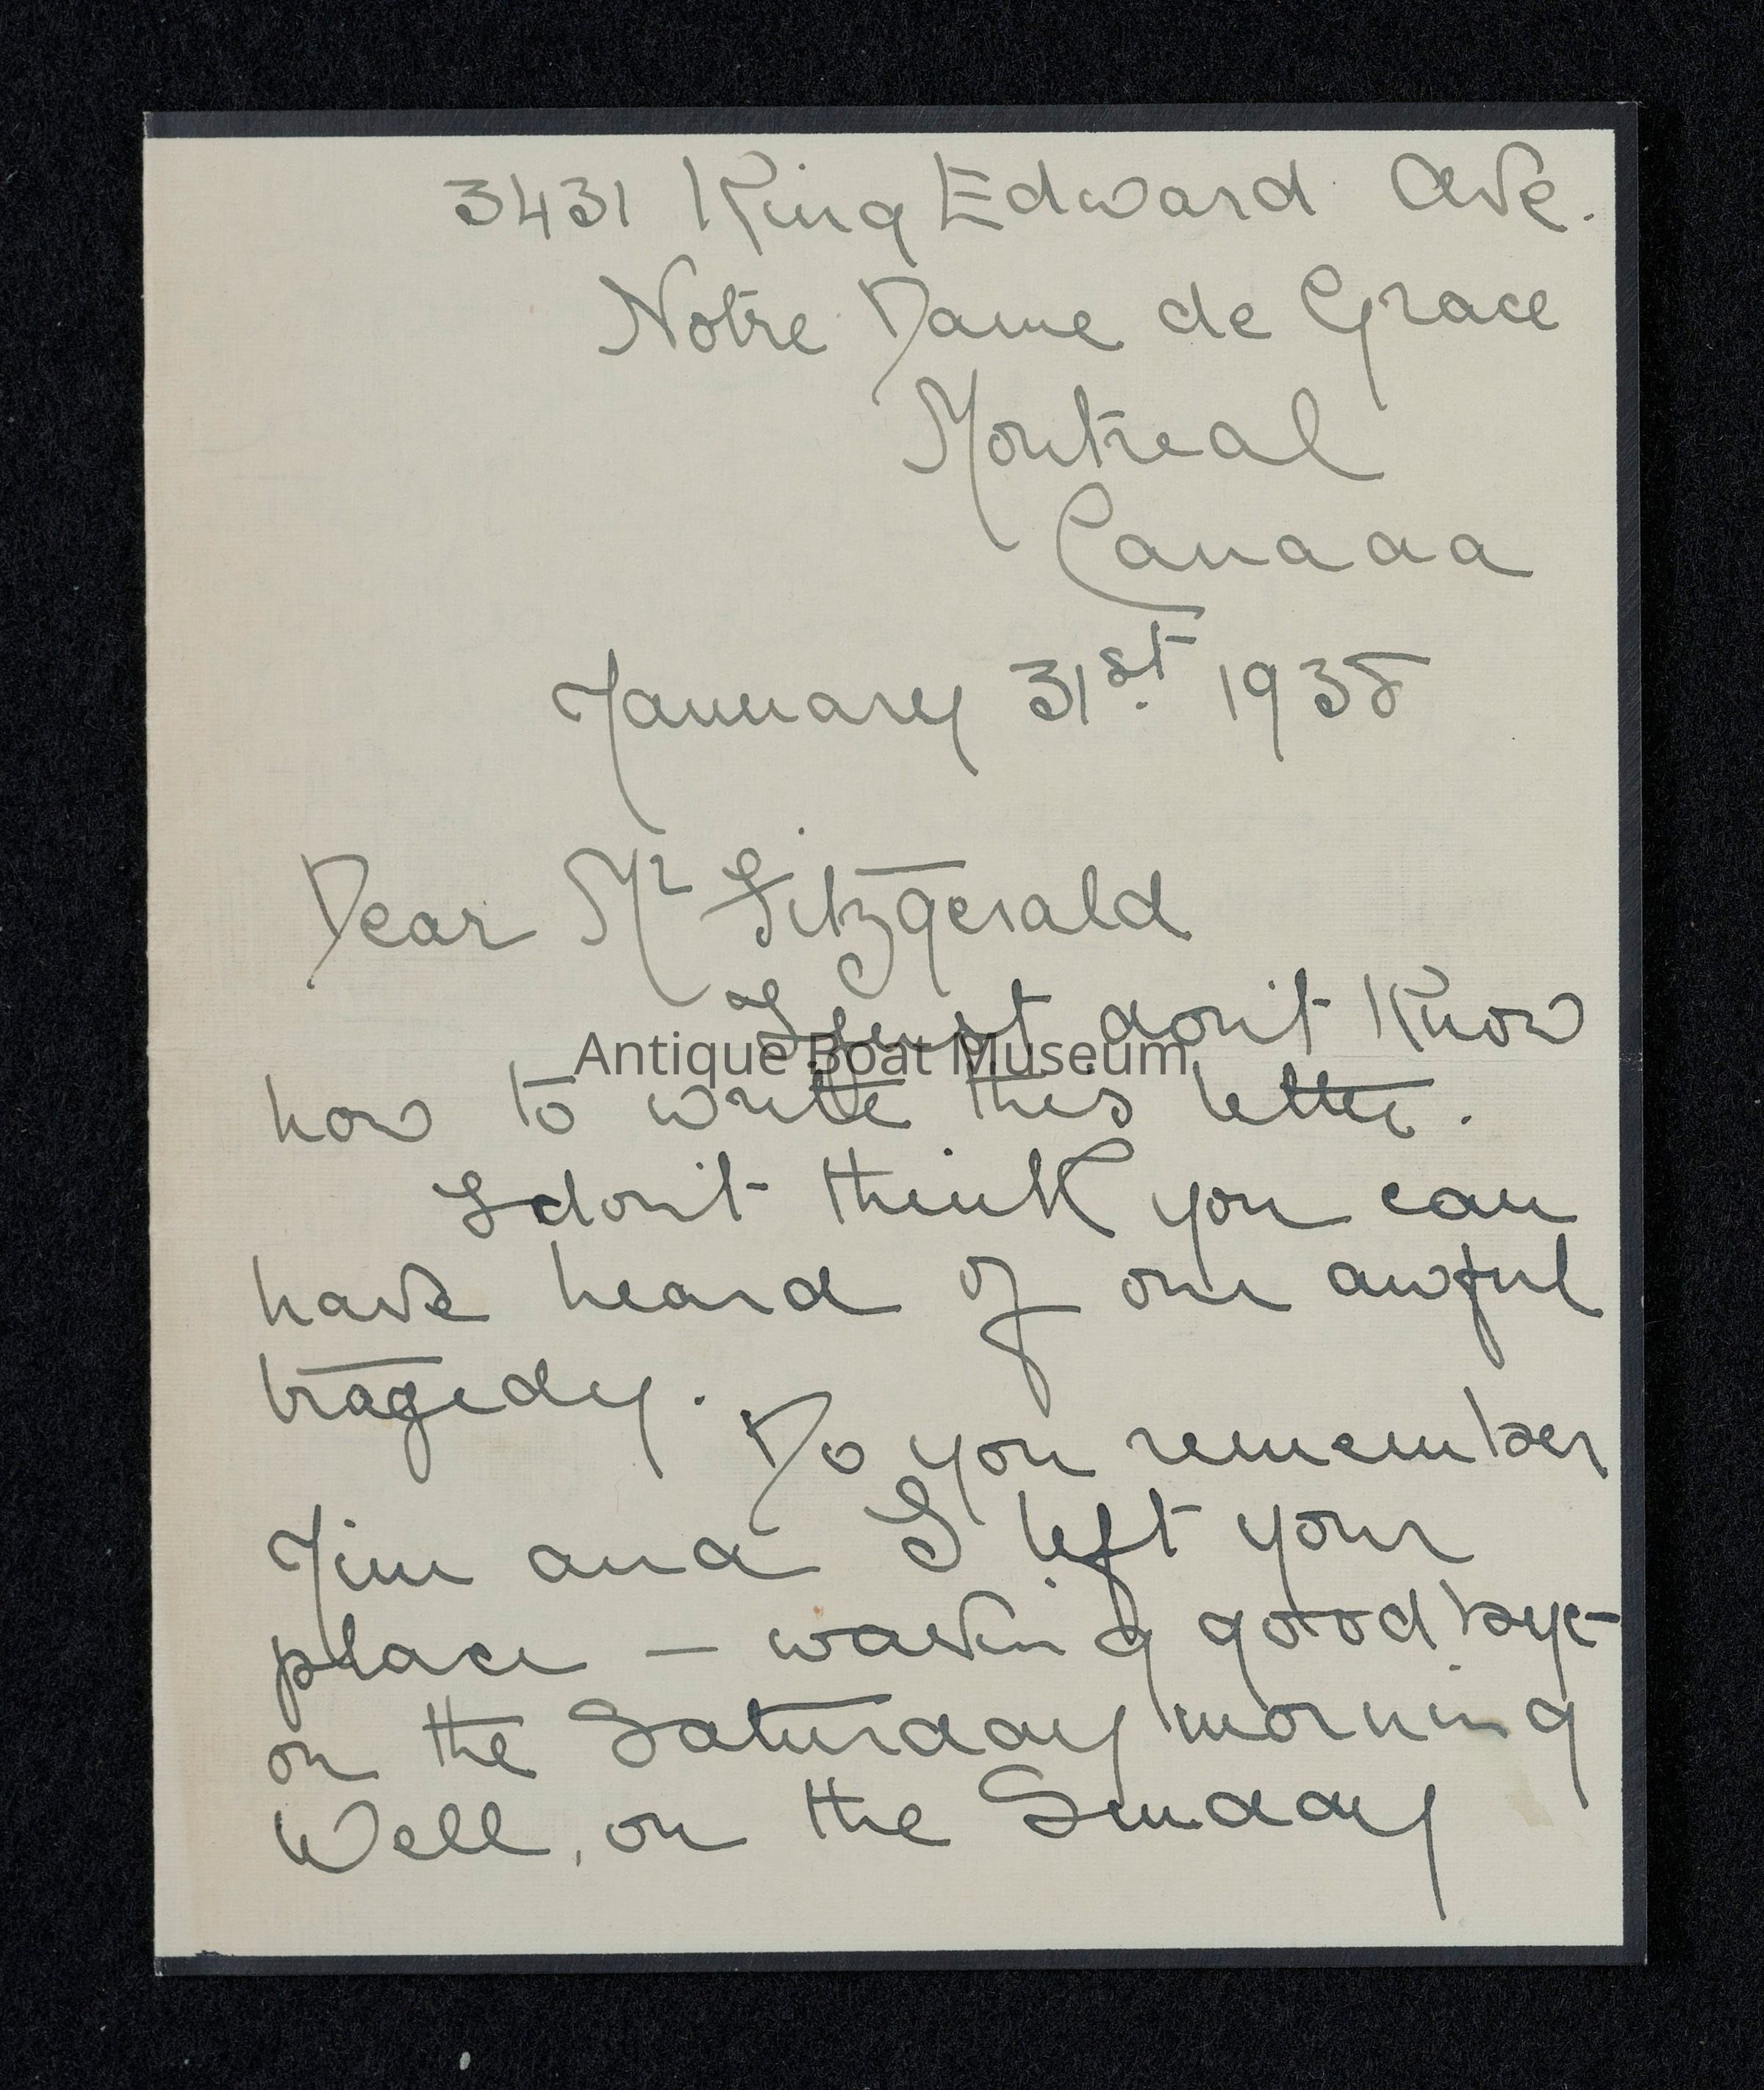 3431 King Edward Ave.
Notre Dame de Grace
Montreal
Canada
January 31st. 1935
Dear Mr Fitzgerald
I just don't know
Antique Boat Museum
how to write this letter.
I don't think you can
have heard of our awful
tragedy.
Do you remember
Jim and I left your
place — waving goodbye-
on the Saturday morning
Well, on the Sunday